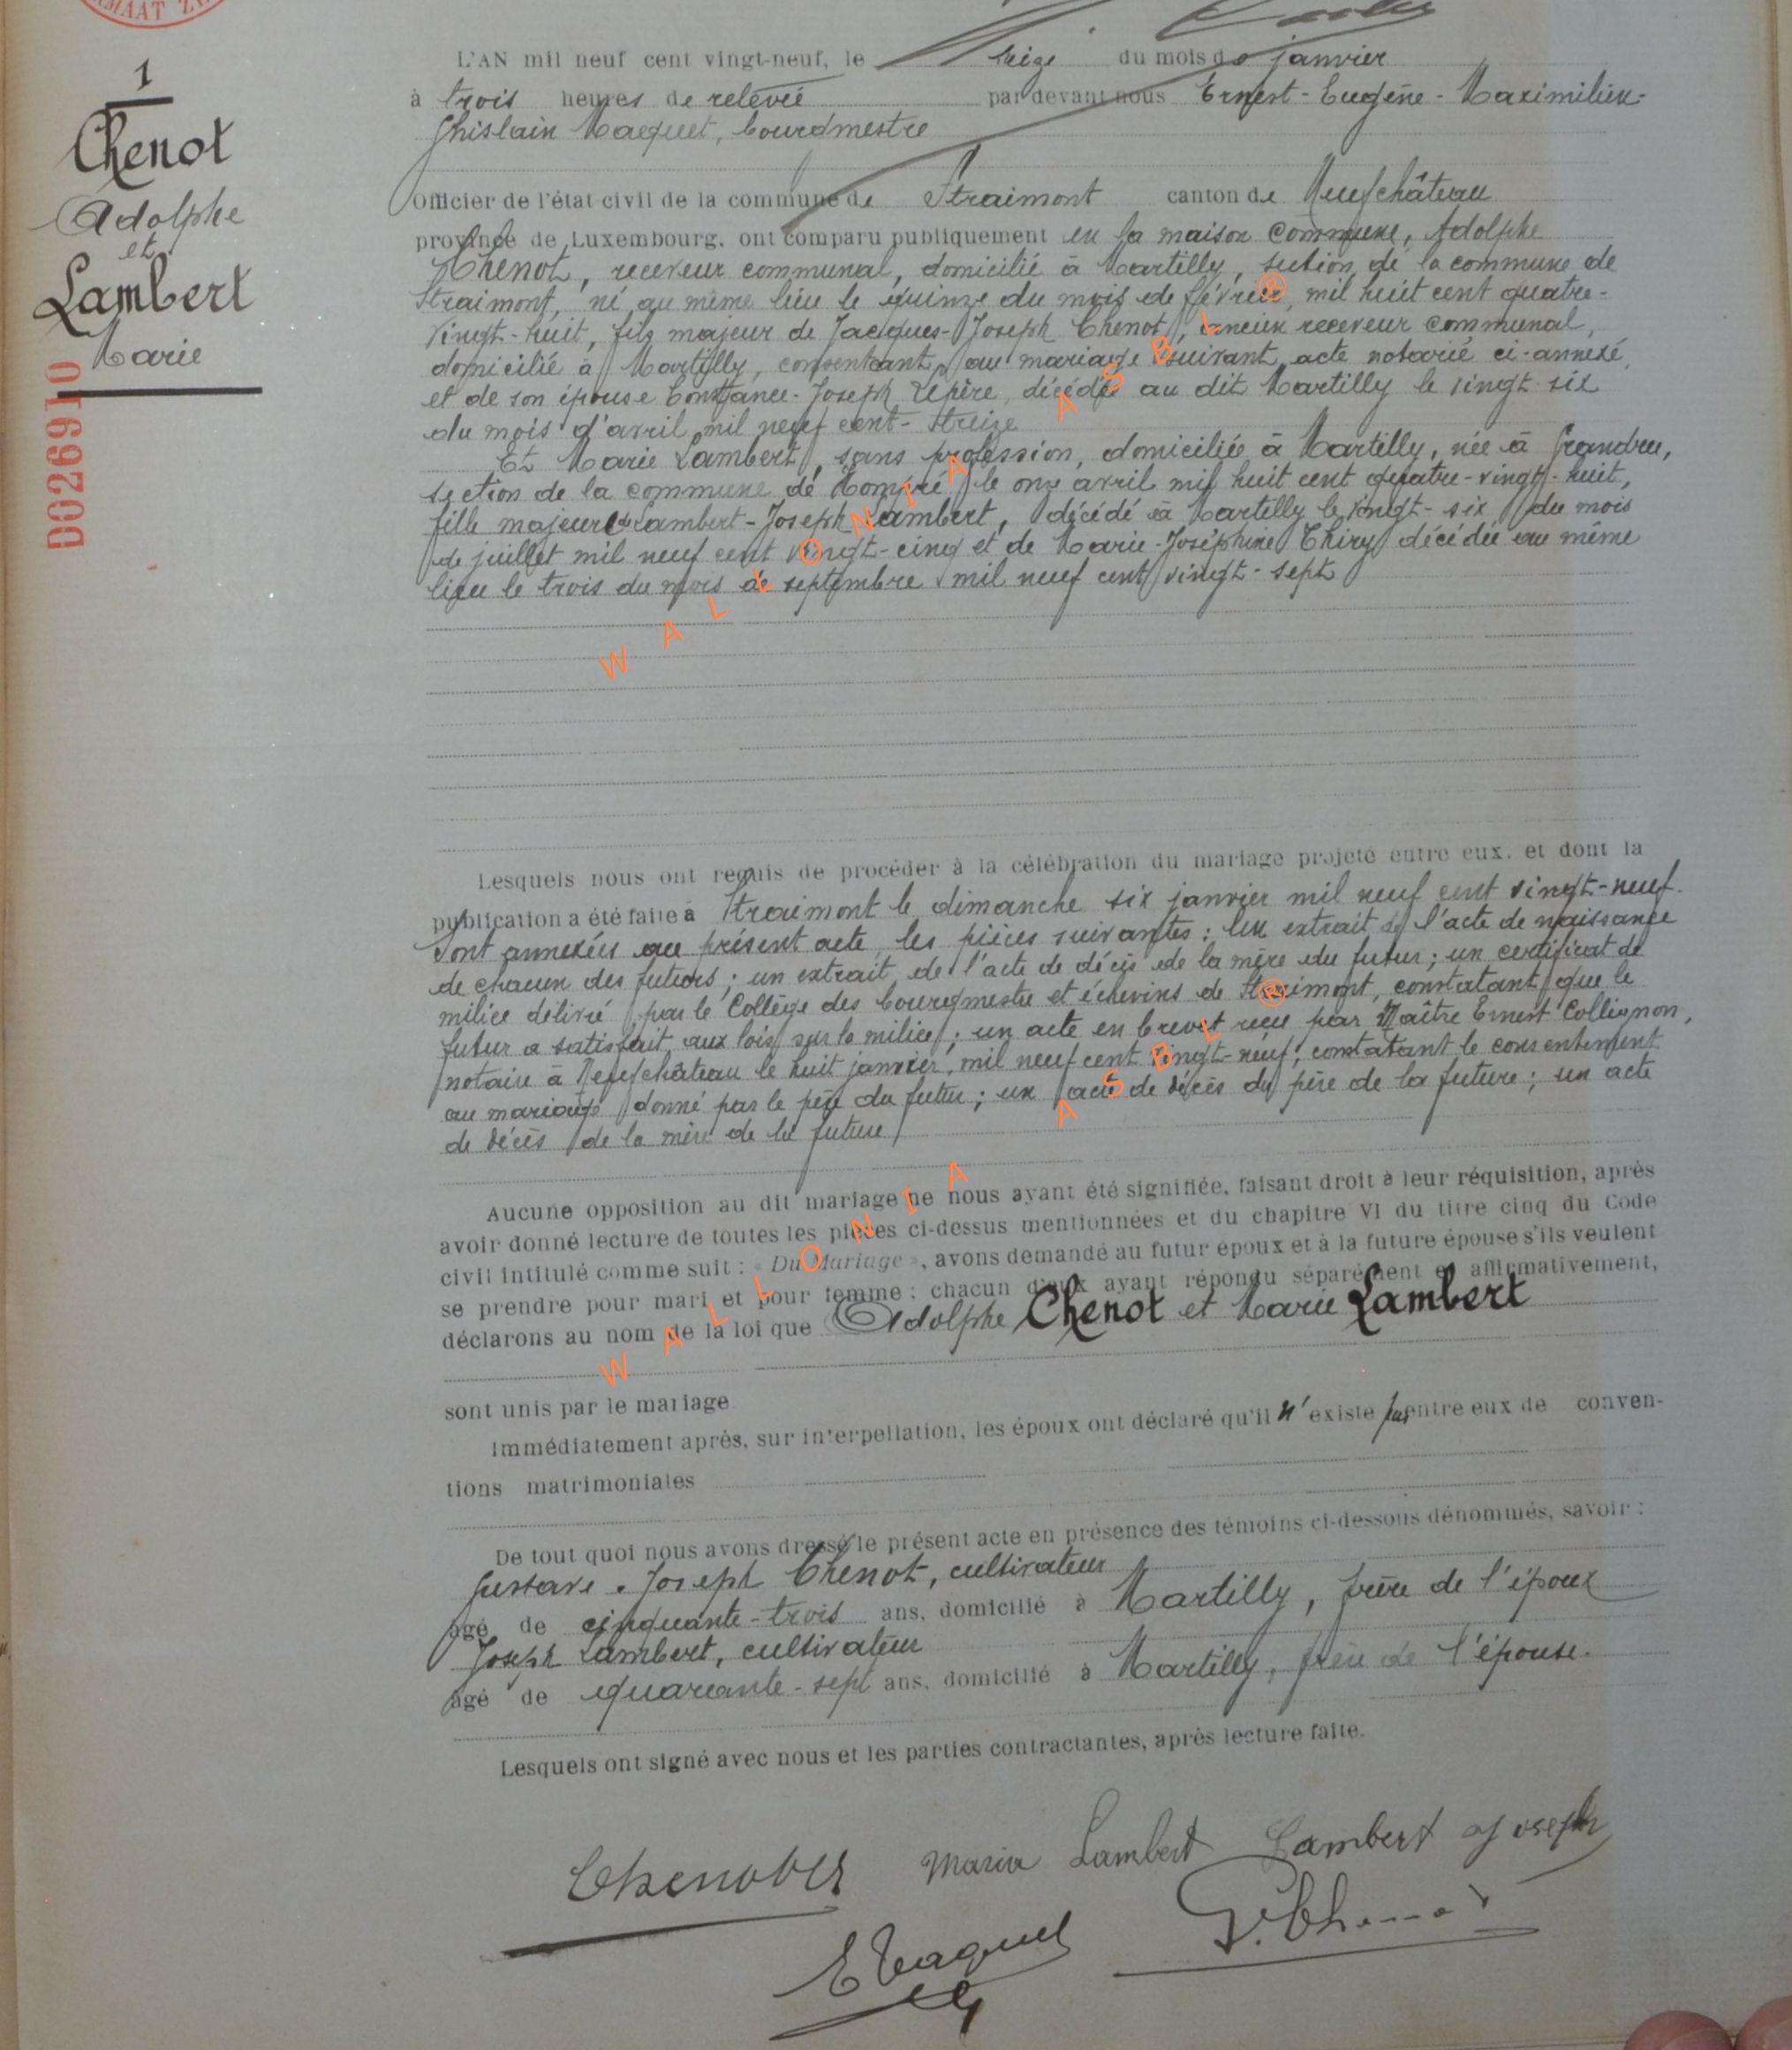 1
Chenot
Adolphe
et
Lambert
Marie
D0026910
L'AN mil neuf cent vingt-neuf, le seize du mois de janvier
à trois heures de relevée par devant nous Ernest-Eugène-Maximilien-
Ghislain Maquet, bourgmestre
Officier de l'état civil de la commune de Straimont canton de Neufchâteau
province de Luxembourg, ont comparu publiquement en la maison commune, Adolphe
Chenot, receveur communal, domicilié à Martilly, section de la commune de
Straimont, né au même lieu le quinze du mois de février, mil huit cent quatre-
vingt-huit, fils majeur de Jacques-Joseph Chenot, ancien receveur communal,
domicilié à Martilly, consentant au mariage suivant acte notarié ci-annexé,
et de son épouse Constance-Joseph Lepère, décédée au dit Martilly le vingt-six
du mois d'avril mil neuf cent-treize
Et Marie Lambert, sans profession, domiciliée à Martilly, née à Grandru,
section de la commune de Hompré le onze avril mil huit cent quatre-vingt-huit,
fille majeure de Lambert-Joseph Lambert, décédé à Martilly le vingt-six du mois
de juillet mil neuf cent vingt-cinq et de Marie-Joséphine Thiry décédée au même
lieu le trois du mois de septembre mil neuf cent vingt-sept
Lesquels nous ont requis de procéder à la célébration du mariage projeté entre eux, et dont la
publication a été faite à Straimont le dimanche six janvier mil neuf cent vingt-neuf.
Sont annexées au présent acte les pièces suivantes: Un extrait de l'acte de naissance
de chacun des futurs; un extrait de l'acte de décès de la mère du futur; un certificat de
milice délivré par le Collège des bourgmestre et échevins de Straimont, constatant que le
futur a satisfait aux lois sur la milice; un acte en brevet reçu par Maître Ernest Collignon,
notaire à Neufchâteau le huit janvier, mil neuf cent vingt-neuf, constatant le consentement
au mariage donné par le père du futur; un acte de décès du père de la future; un acte
de décès de la mère de la future
Aucune opposition au dit mariage ne nous ayant été signifiée, faisant droit à leur réquisition, après
avoir donné lecture de toutes les pièces ci-dessus mentionnées et du chapitre VI du titre cinq du Code
civil intitulé comme suit : « Du Mariage », avons demandé au futur époux et à la future épouse s'ils veulent
se prendre pour mari et pour femme ; chacun d'eux ayant répondu séparément et affirmativement,
déclarons au nom de la loi que Adolphe Chenot et Marie Lambert
sont unis par le mariage
Immédiatement après, sur interpellation, les époux ont déclaré qu'il n'existe pas entre eux de conven-
tions matrimoniales
De tout quoi nous avons dressé le présent acte en présence des témoins ci-dessous dénommés, savoir :
Gustave-Joseph Chenot, cultivateur
âgé de cinquante-trois ans, domicilié à Martilly, frère de l'époux
Joseph Lambert, cultivateur
âgé de quarante-sept ans, domicilié à Martilly, frère de l'épouse.
Lesquels ont signé avec nous et les parties contractantes, après lecture faite.
Maria Lambert Lambert Joseph
E Maquet
WALLONIA ASBL ®
WALLONIA ASBL ®